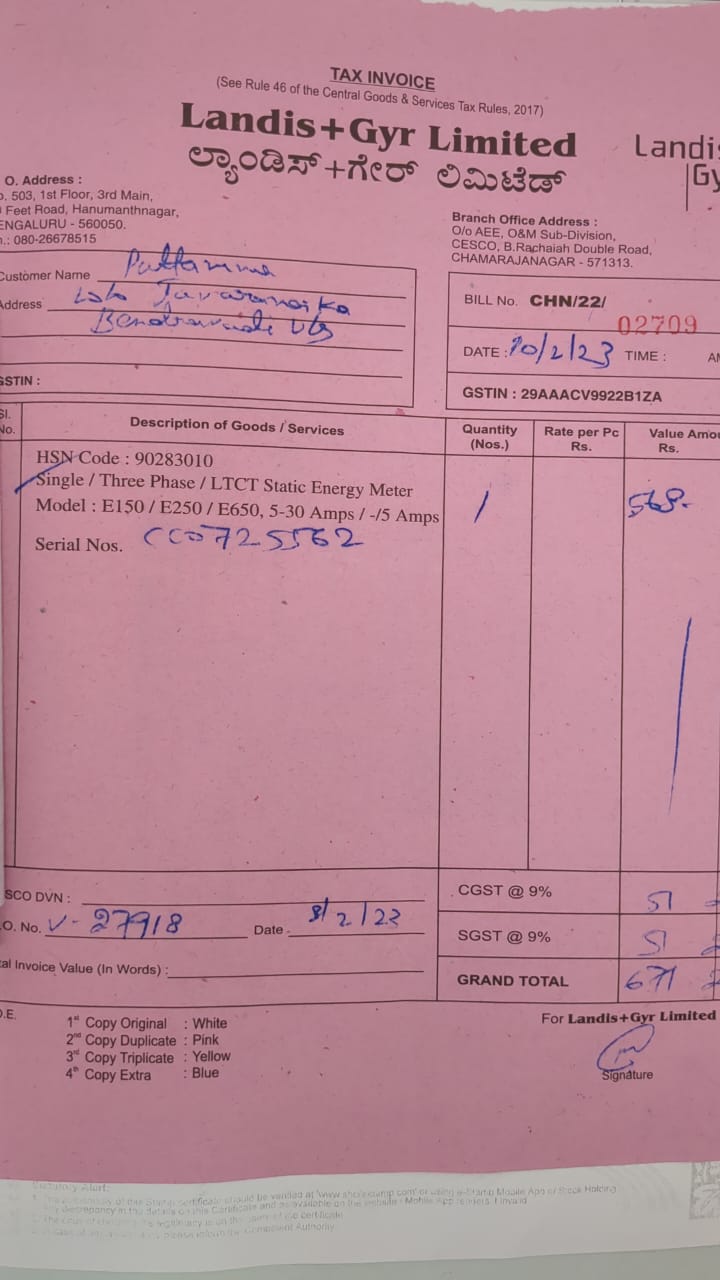 TAX INVOICE
(See Rule 46 of the Central Goods & Services Tax Rules, 2017)
Landis+Gyr Limited
ಲ್ಯಾಂಡಿಸ್+ಗೇರ್ ಲಿಮಿಟೆಡ್
Landis
Gy
O. Address :
503, 1st Floor, 3rd Main,
Feet Road, Hanumanthnagar,
ENGALURU - 560050.
.: 080-26678515
Branch Office Address :
O/o AEE, O&M Sub-Division,
CESCO, B.Rachaiah Double Road,
CHAMARAJANAGAR - 571313.
Customer Name Puttamma
Address
BILL No. CHN/22/ 02709
DATE : 10/2/23 TIME : AM
GSTIN :
GSTIN : 29AAACV9922B1ZA
Sl. No. Description of Goods / Services Quantity (Nos.) Rate per Pc Rs. Value Amou Rs.
HSN Code : 90283010
Single / Three Phase / LTCT Static Energy Meter
Model : E150 / E250 / E650, 5-30 Amps / -/5 Amps 1 569-
Serial Nos. CC0725562
SCO DVN :
O. No. V-27918 Date 8/2/23
al Invoice Value (In Words) :
CGST @ 9% 51
SGST @ 9% 51
GRAND TOTAL 671
O.E.
1st Copy Original : White
2nd Copy Duplicate : Pink
3rd Copy Triplicate : Yellow
4th Copy Extra : Blue
For Landis+Gyr Limited
Signature
Statutory Alert: